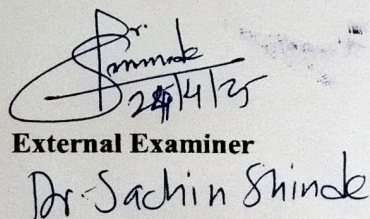 Dr.
External Examiner
Dr. Sachin Shinde